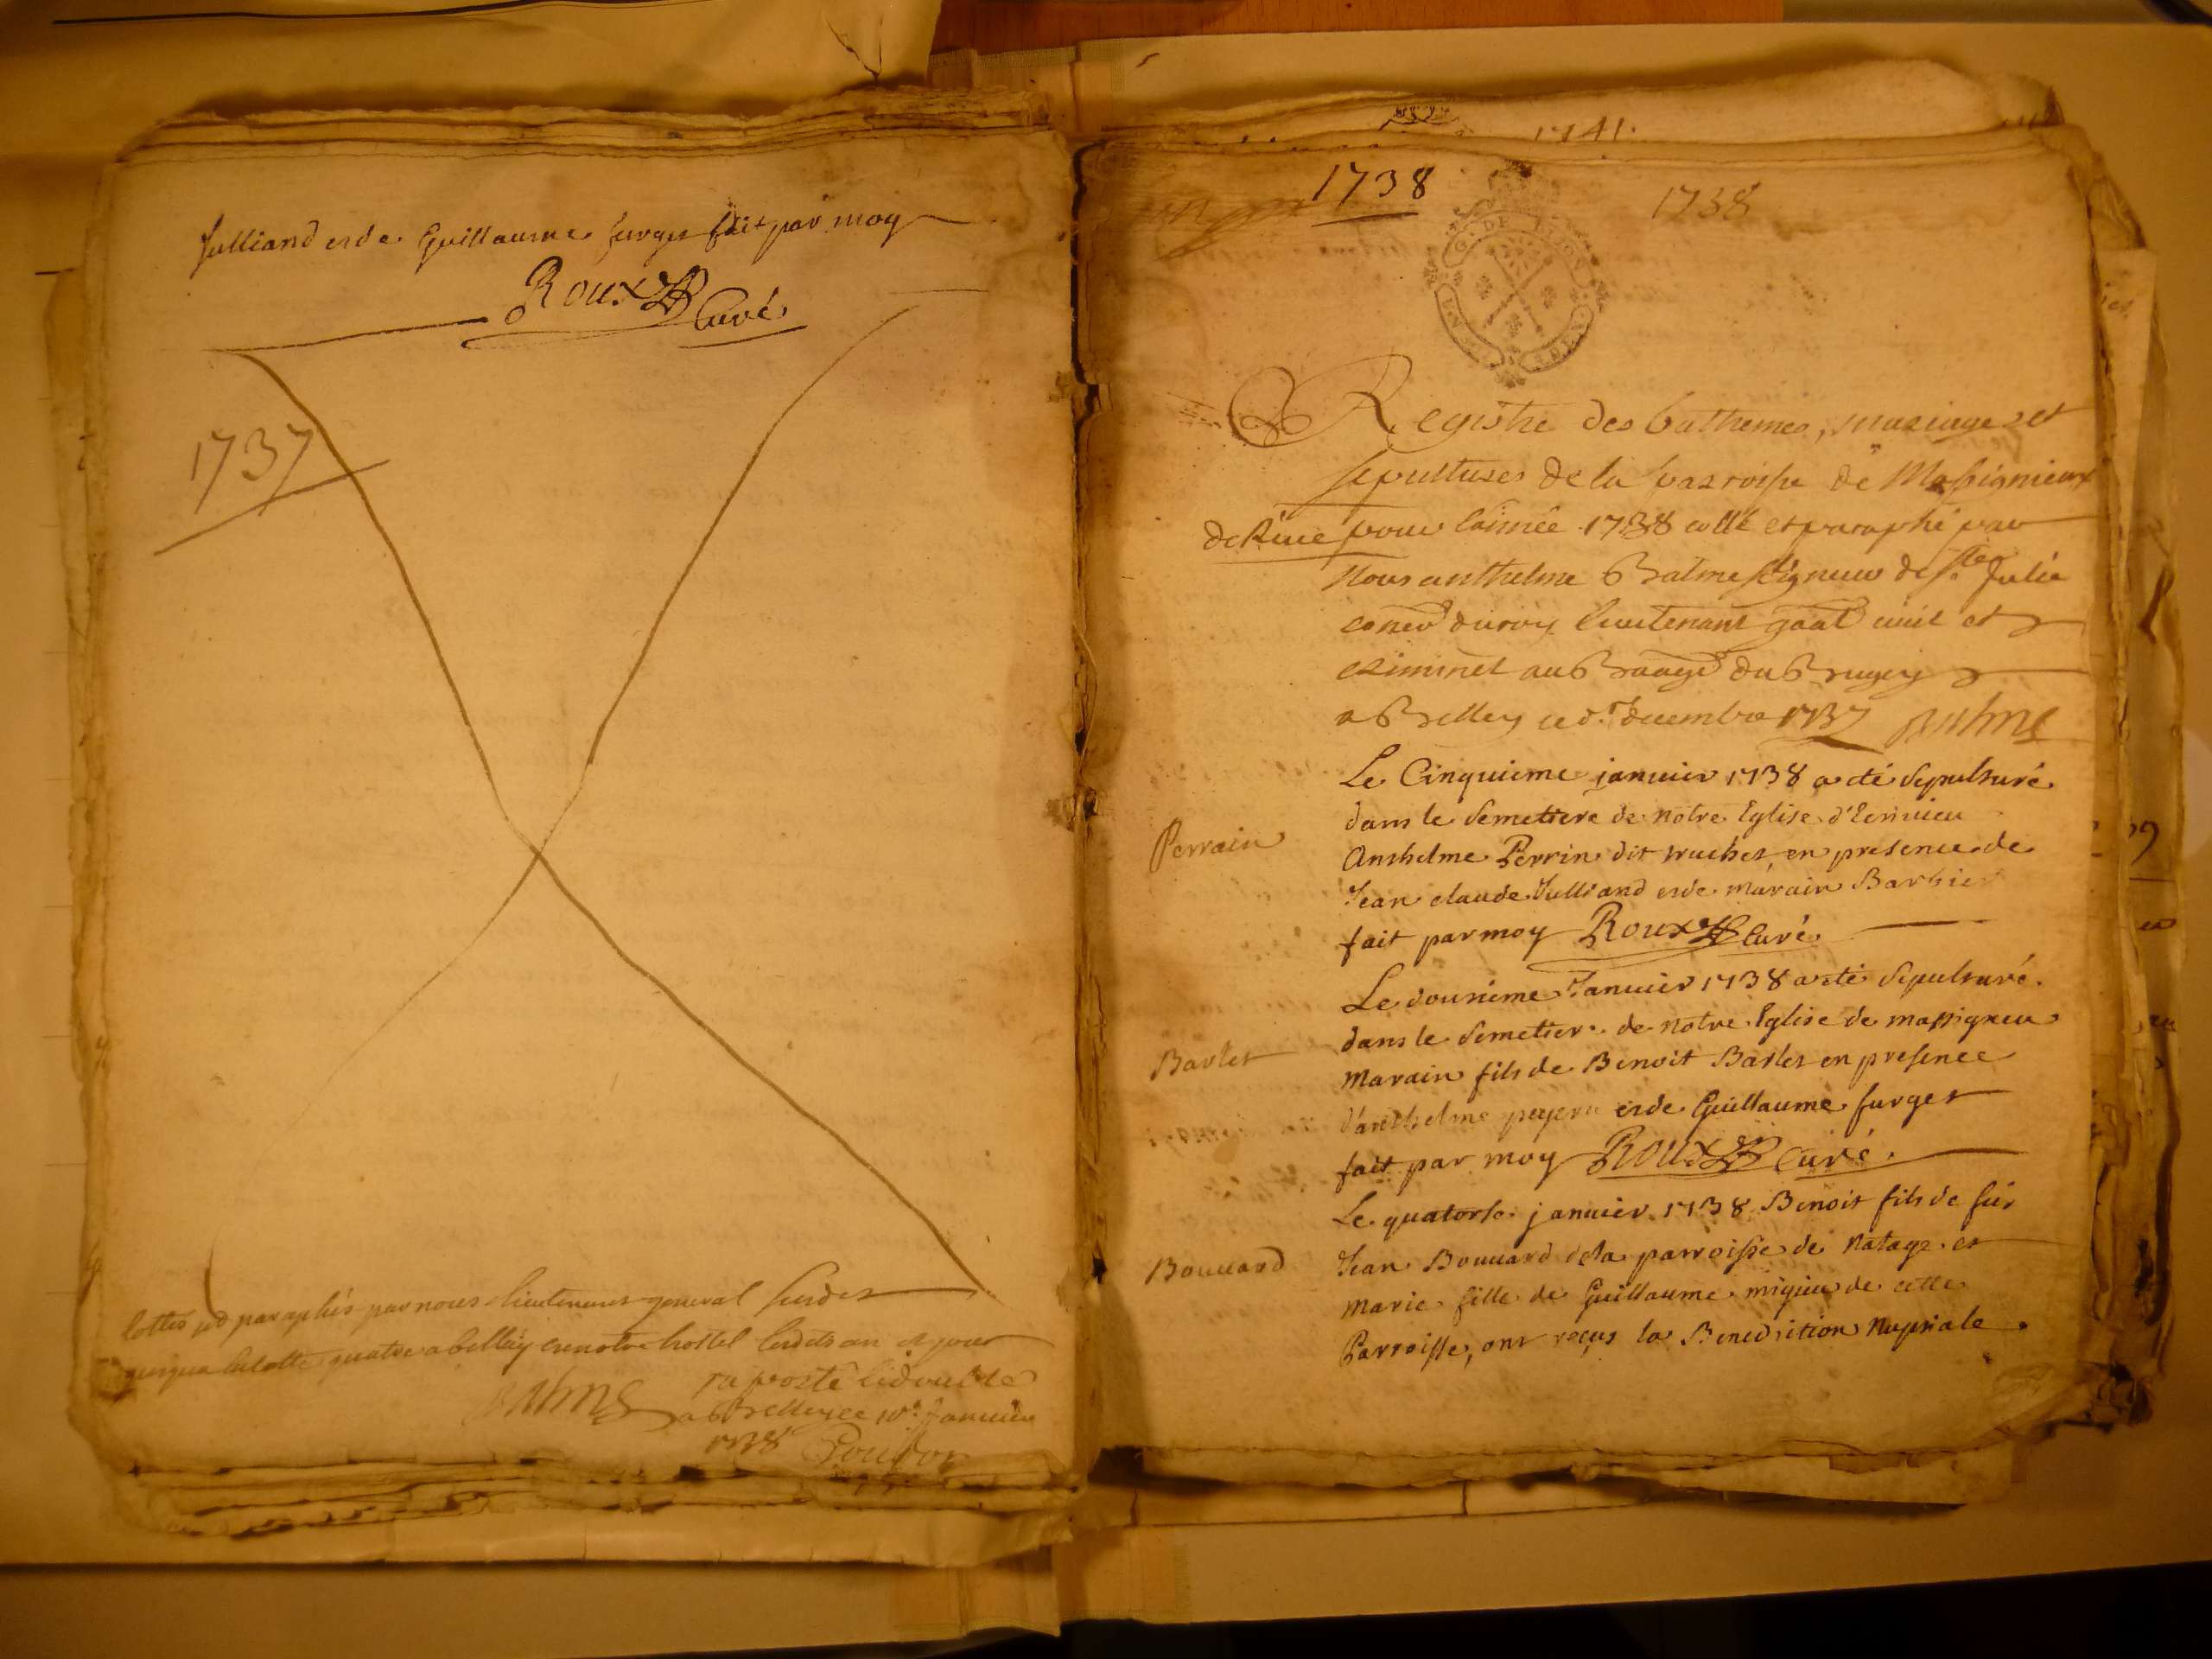 Julliand et de Guillaume furget fait par moy
Roux Curé
1737
Cottés et paraphés par nous lieutenant general susdit
jusqua la cotte quatre a belley en notre hostel lesdits an et jour
Balme
raporté le double
a Belley ce 10e Janvier
1738
1741.
1738
1738
G. DE DIJON
Registre des bathemes, mariages et
sepultures de la parroisse de Massignieux
de Rive pour lannée 1738 cotté et paraphé par
Nous anthelme Balme seigneur de Ste Julie
coner du roy lieutenant gnāl civil et
criminel au Baage du Bugey
a Belley ce decembre 1737 Balme
Le Cinquieme janvier 1738 a eté sepulturé
dans le semetiere de notre Eglise d'Ecrivieu
Perrain
Anthelme Perrin dit truchet en presence de
Jean claude Julliand et de marain Barbier
fait par moy Roux Curé
Le dousieme Janvier 1738 a eté sepulturé
dans le semetiere de notre Eglise de massigneu
Barlet
marain fils de Benoit Barlet en presence
d'anthelme et de Guillaume furget
fait par moy Roux curé.
Le quatorse janvier 1738 Benoit fils de feu
Bouuard
Jean Bouuard dela parroisse de Natage et
marie fille de Guillaume migieu de cette
Parroisse, ont reçus la Benediction Nuptiale